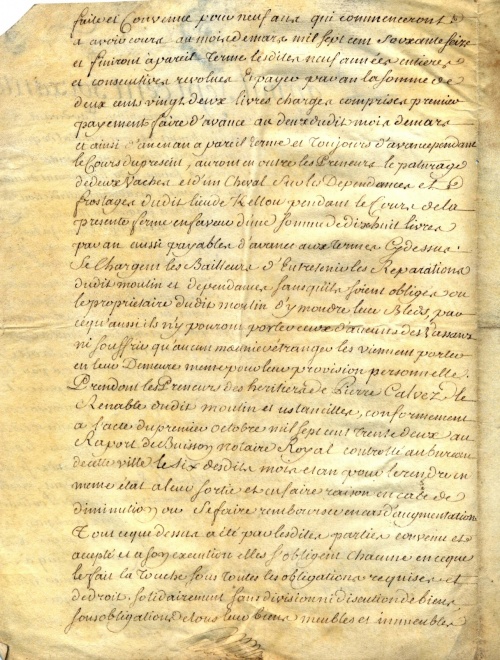 faite et Convenue pour neuf ans qui commenceront
a avoir cours au mois de mars mil sept cent soixante seize
et finiront a pareil terme lesdites neuf années entieres
et consecutives revolues a payer par an la somme de
deux cents vingt deux livres charges comprises premier
payement faire d'avance au deux dudit mois de mars
et ainsi d'an en an a pareil terme et toujours d'avance pendant
le Cours du present, auront en outre les Preneurs le paturage
de deux Vaches et d'un Cheval sur les Dependances et
frostages dudit lieu de Kellou pendant le Cours de la
presente ferme en faveur d'une somme de dix huit livres
par an aussi payables d'avance aux termes Cydessus.
Se Chargent les Bailleurs d'Entretenir les Reparations
dudit moulin et dependances sans qu'ils soient obligés ou
le proprietaire dudit moulin d'y moudre leur Bleds, par
ce qu'aussi ils n'y pouront porter ceux d'aucuns des Vassaux
ni souffrir qu'aucun meunier etranger les viennent porter
en leur Demeure meme pour leur provision personnelle.
Prendont les Preneurs des heritiers de Pierre Calvez le
Renable dudit moulin et ustancilles, conformement
a l'acte du premier octobre mil sept cent trente deux au
Raport de Buisson notaire Royal controllé au bureau
de cette ville le six desdits mois et an pour le rendre en
meme état a leur sortie et en faire raison en cas de
diminution ou se faire rembourser en cas d'augmentation
Tout ce que dessus a été par lesdites parties convenu et
acepté et a son execution elles s'obligent chacune en ce que
le fait la touche sous toutes les obligations requises et
de droit, solidairement sous division ni discution de biens
sous obligations de tous leur biens meubles et immeubles